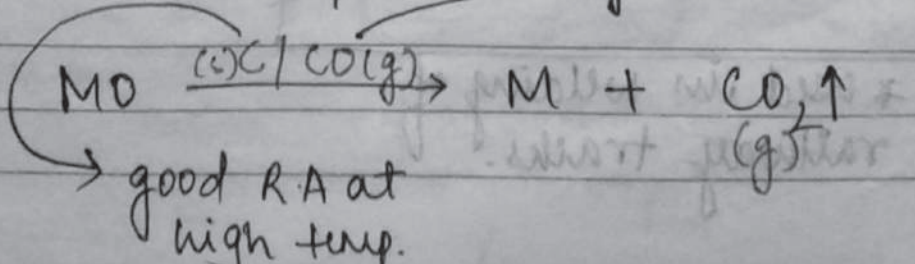 MO (s)C/CO(g)→ M + CO₂↑
(g)
good R.A at
high temp.